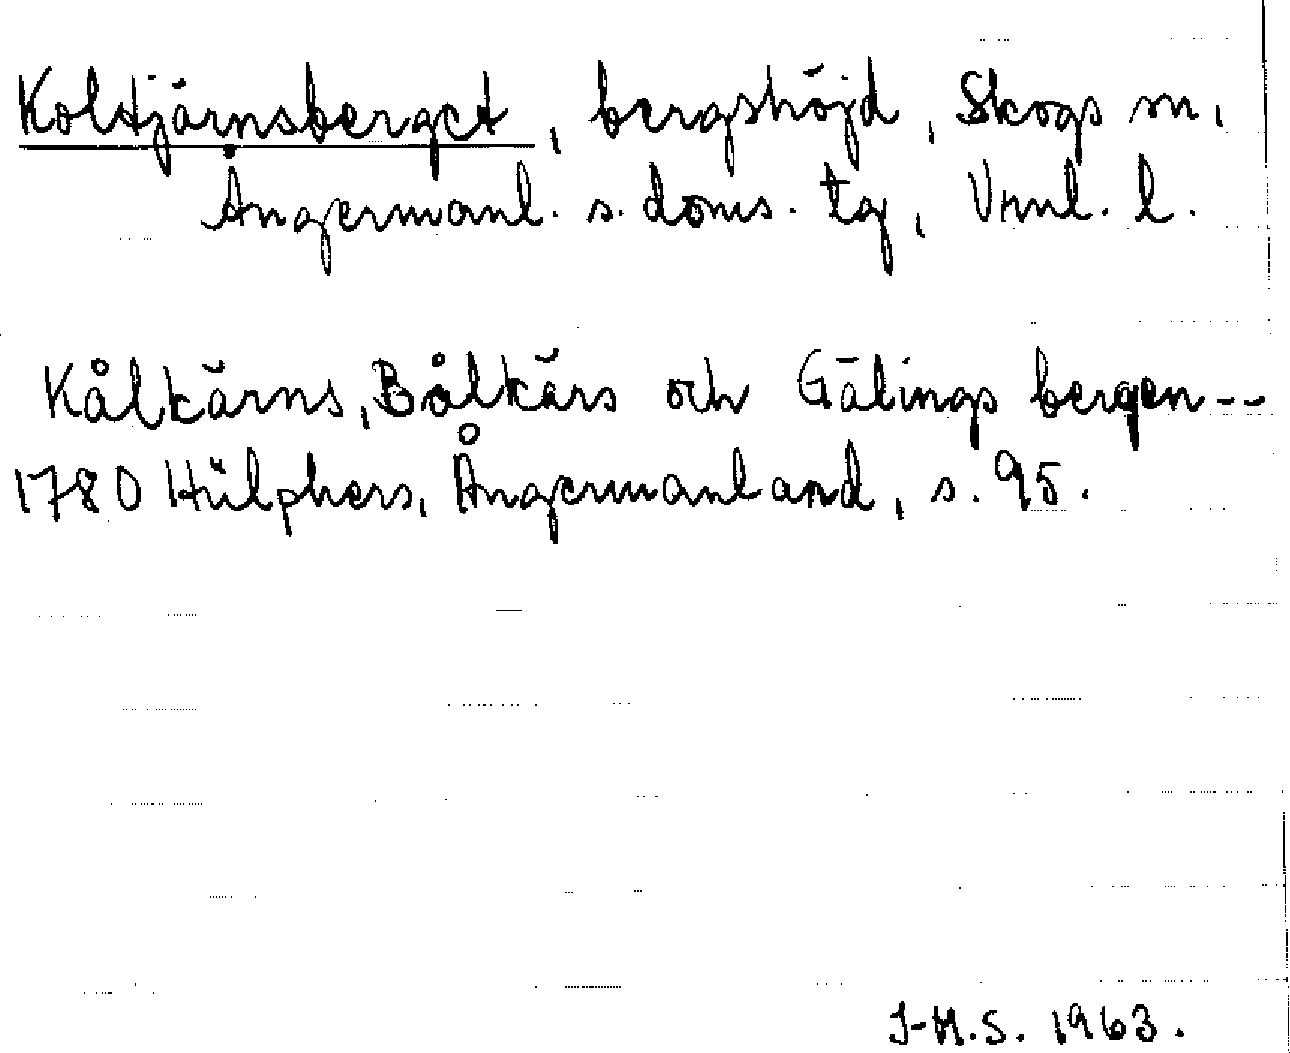 Koltjärnsberget, bergshöjd, Skogs sn,
Ångermanl. s. doms. tg, Vrnl. l.
Kålkärns, Bålkärs och Gälings bergen--
1780 Hülphers, Ångermanland, s. 95.
J-H.S. 1963.